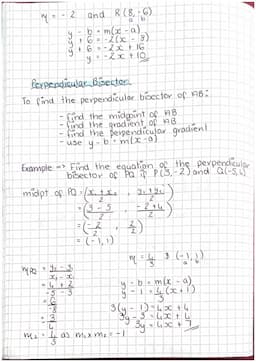 m = -2 and R(8, -6)
a b
y - b = m(x - a)
y + 6 = -2(x - 8)
y + 6 = -2x + 16
y = -2x + 10
Perpendicular Bisector
To find the perpendicular bisector of AB:
- find the midpoint of AB
- find the gradient of AB
- find the perpendicular gradient
- use y - b = m(x - a)
Example => Find the equation of the perpendicular
bisector of PQ if P(3, -2) and Q(-5, 4)
midpt of PQ = (x₁ + x₂ / 2 , y₁ + y₂ / 2)
= (3 - 5 / 2 , -2 + 4 / 2)
= (-2 / 2 , 2 / 2)
= (-1, 1)
mPQ = y₂ - y₁ / x₂ - x₁
= 4 + 2 / -5 - 3
= 6 / -8
= -3 / 4
m₂ = 4 / 3 as m₁ x m₂ = -1
m = 4 / 3 (-1, 1)
a b
y - b = m(x - a)
y - 1 = 4 / 3 (x + 1)
3(y - 1) = 4x + 4
3y - 3 = 4x + 4
3y = 4x + 7